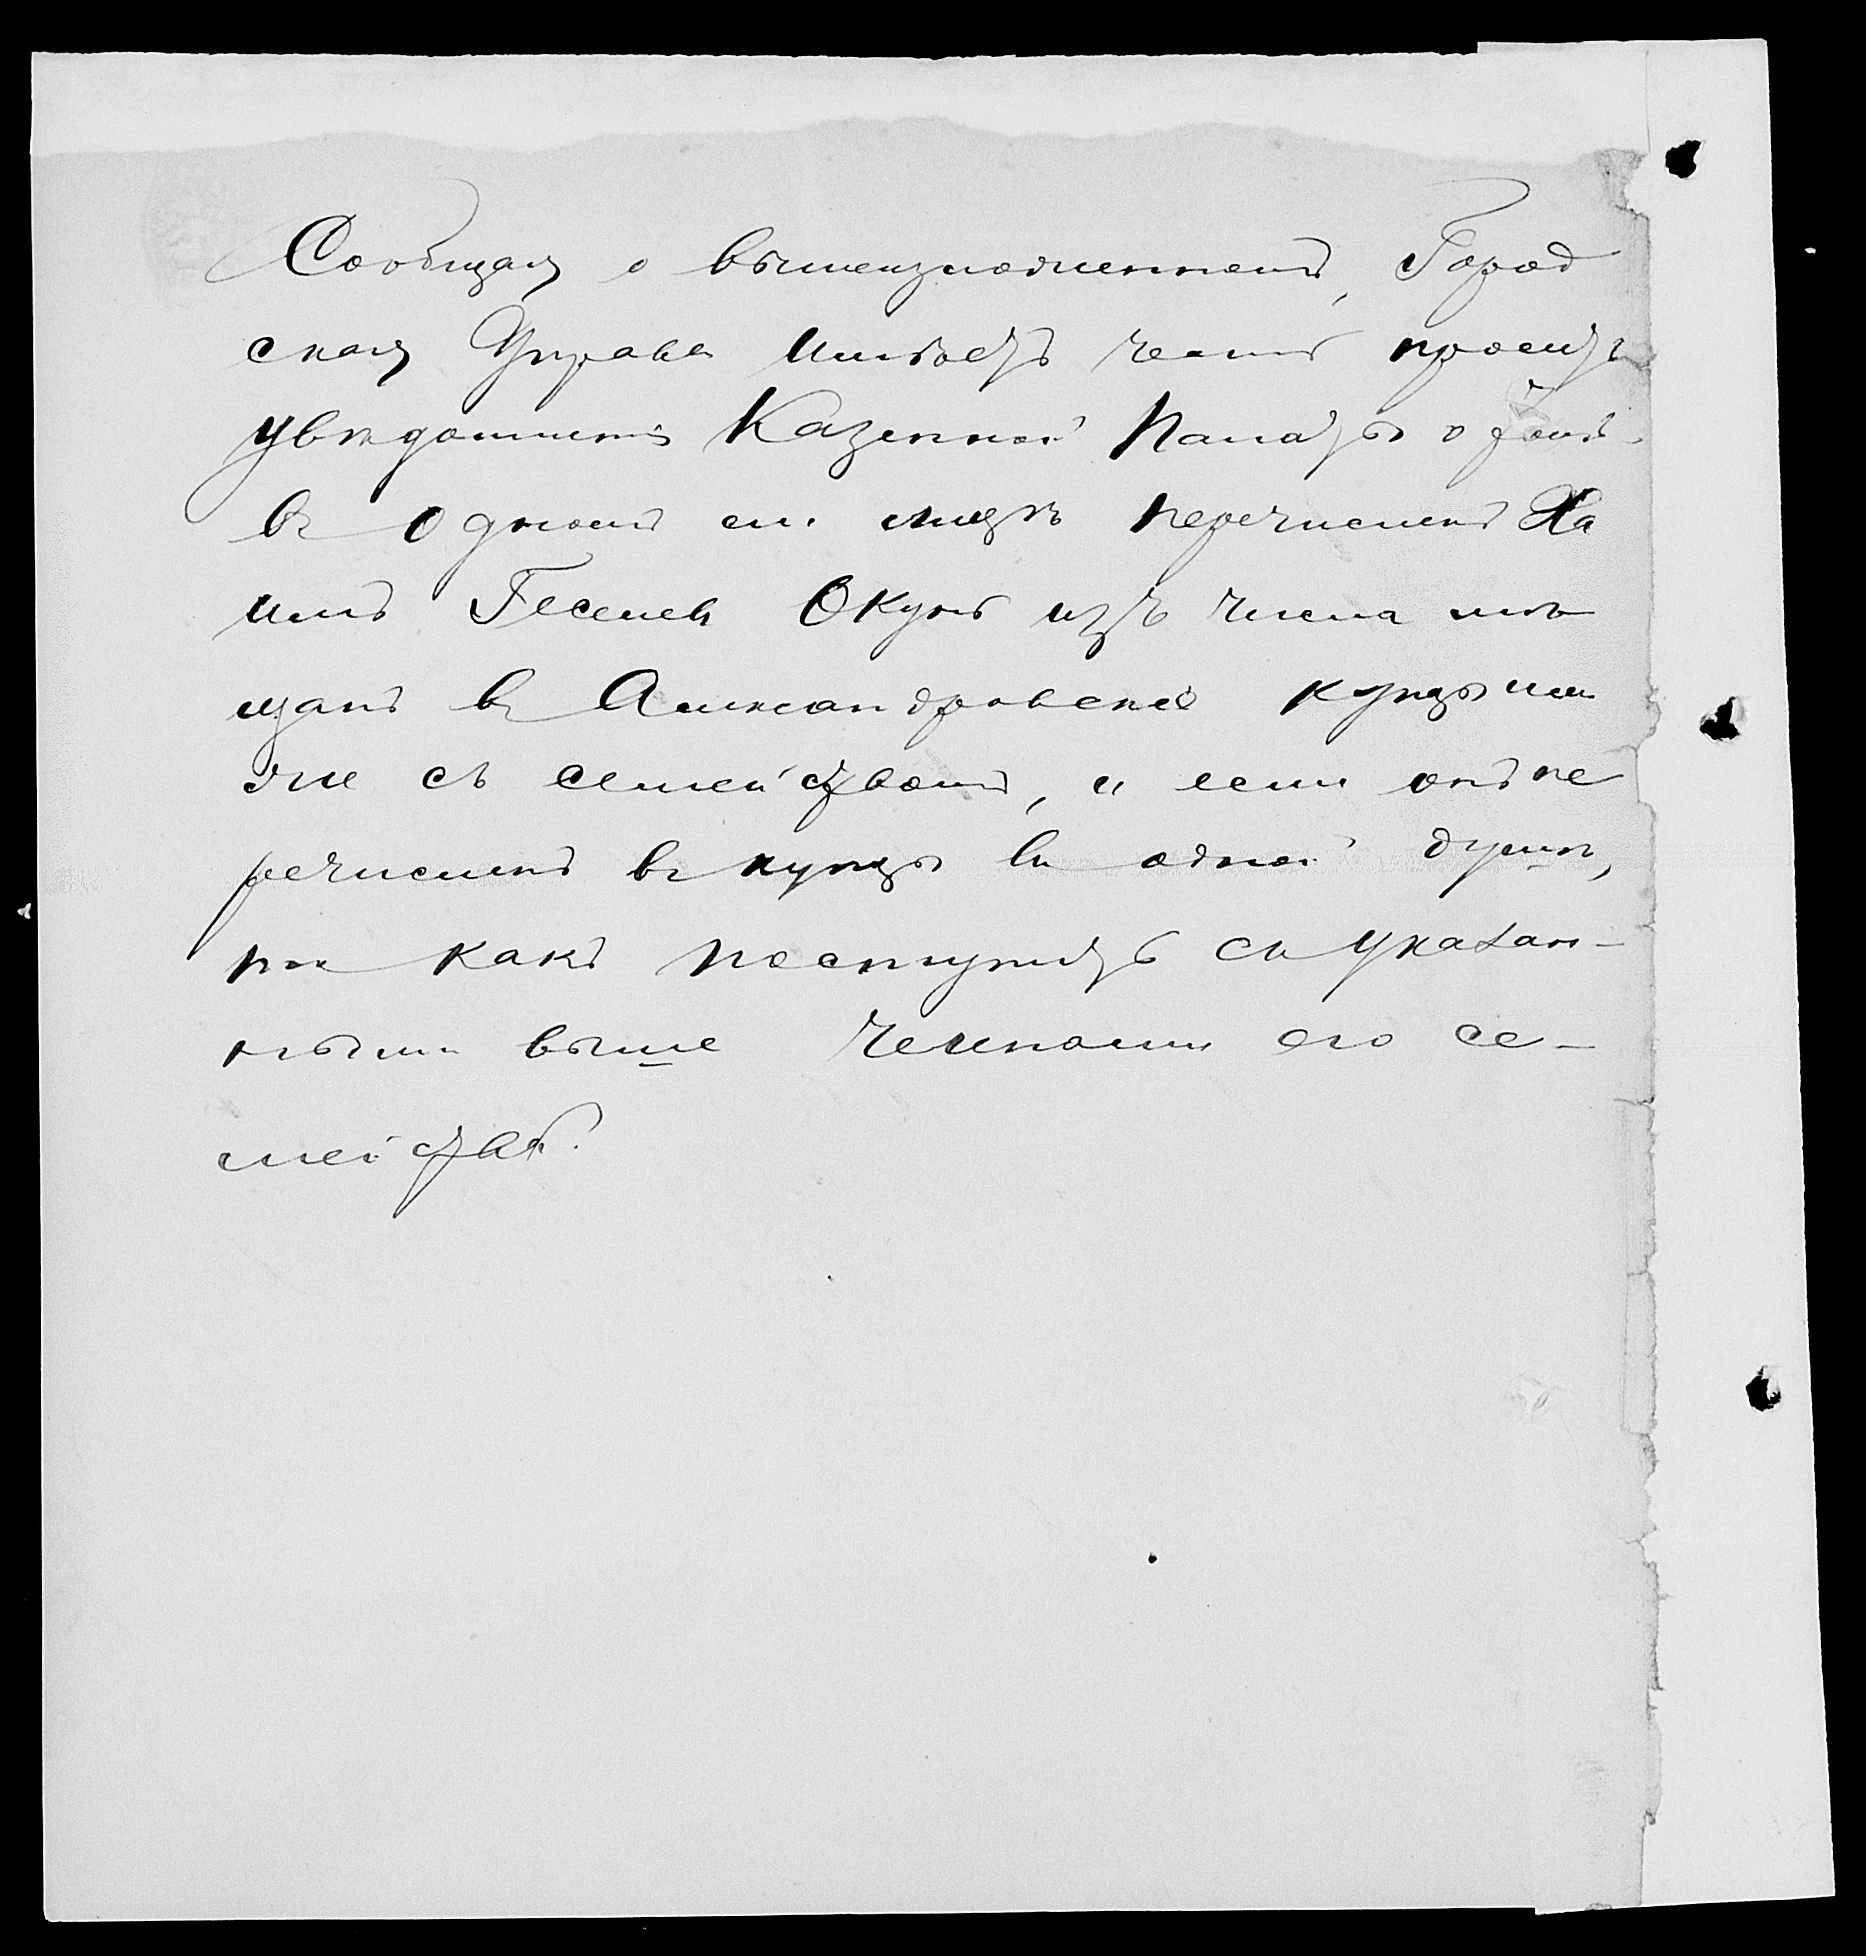 Сообщая о вышеизложенномъ, Город
ская Управа имѣетъ честь просить
увѣдомленія Казенной Палаты о томъ
въ одномъ ли лицѣ перечисленъ Ха
имъ Геселев Окунь изъ числа мѣ
щанъ въ Александровскіе купцы или
же съ семействомъ, и если онъ пе
речисленъ въ купцы въ одной душѣ,
то какъ поступить съ указан-
ными выше членами его се-
мейства?